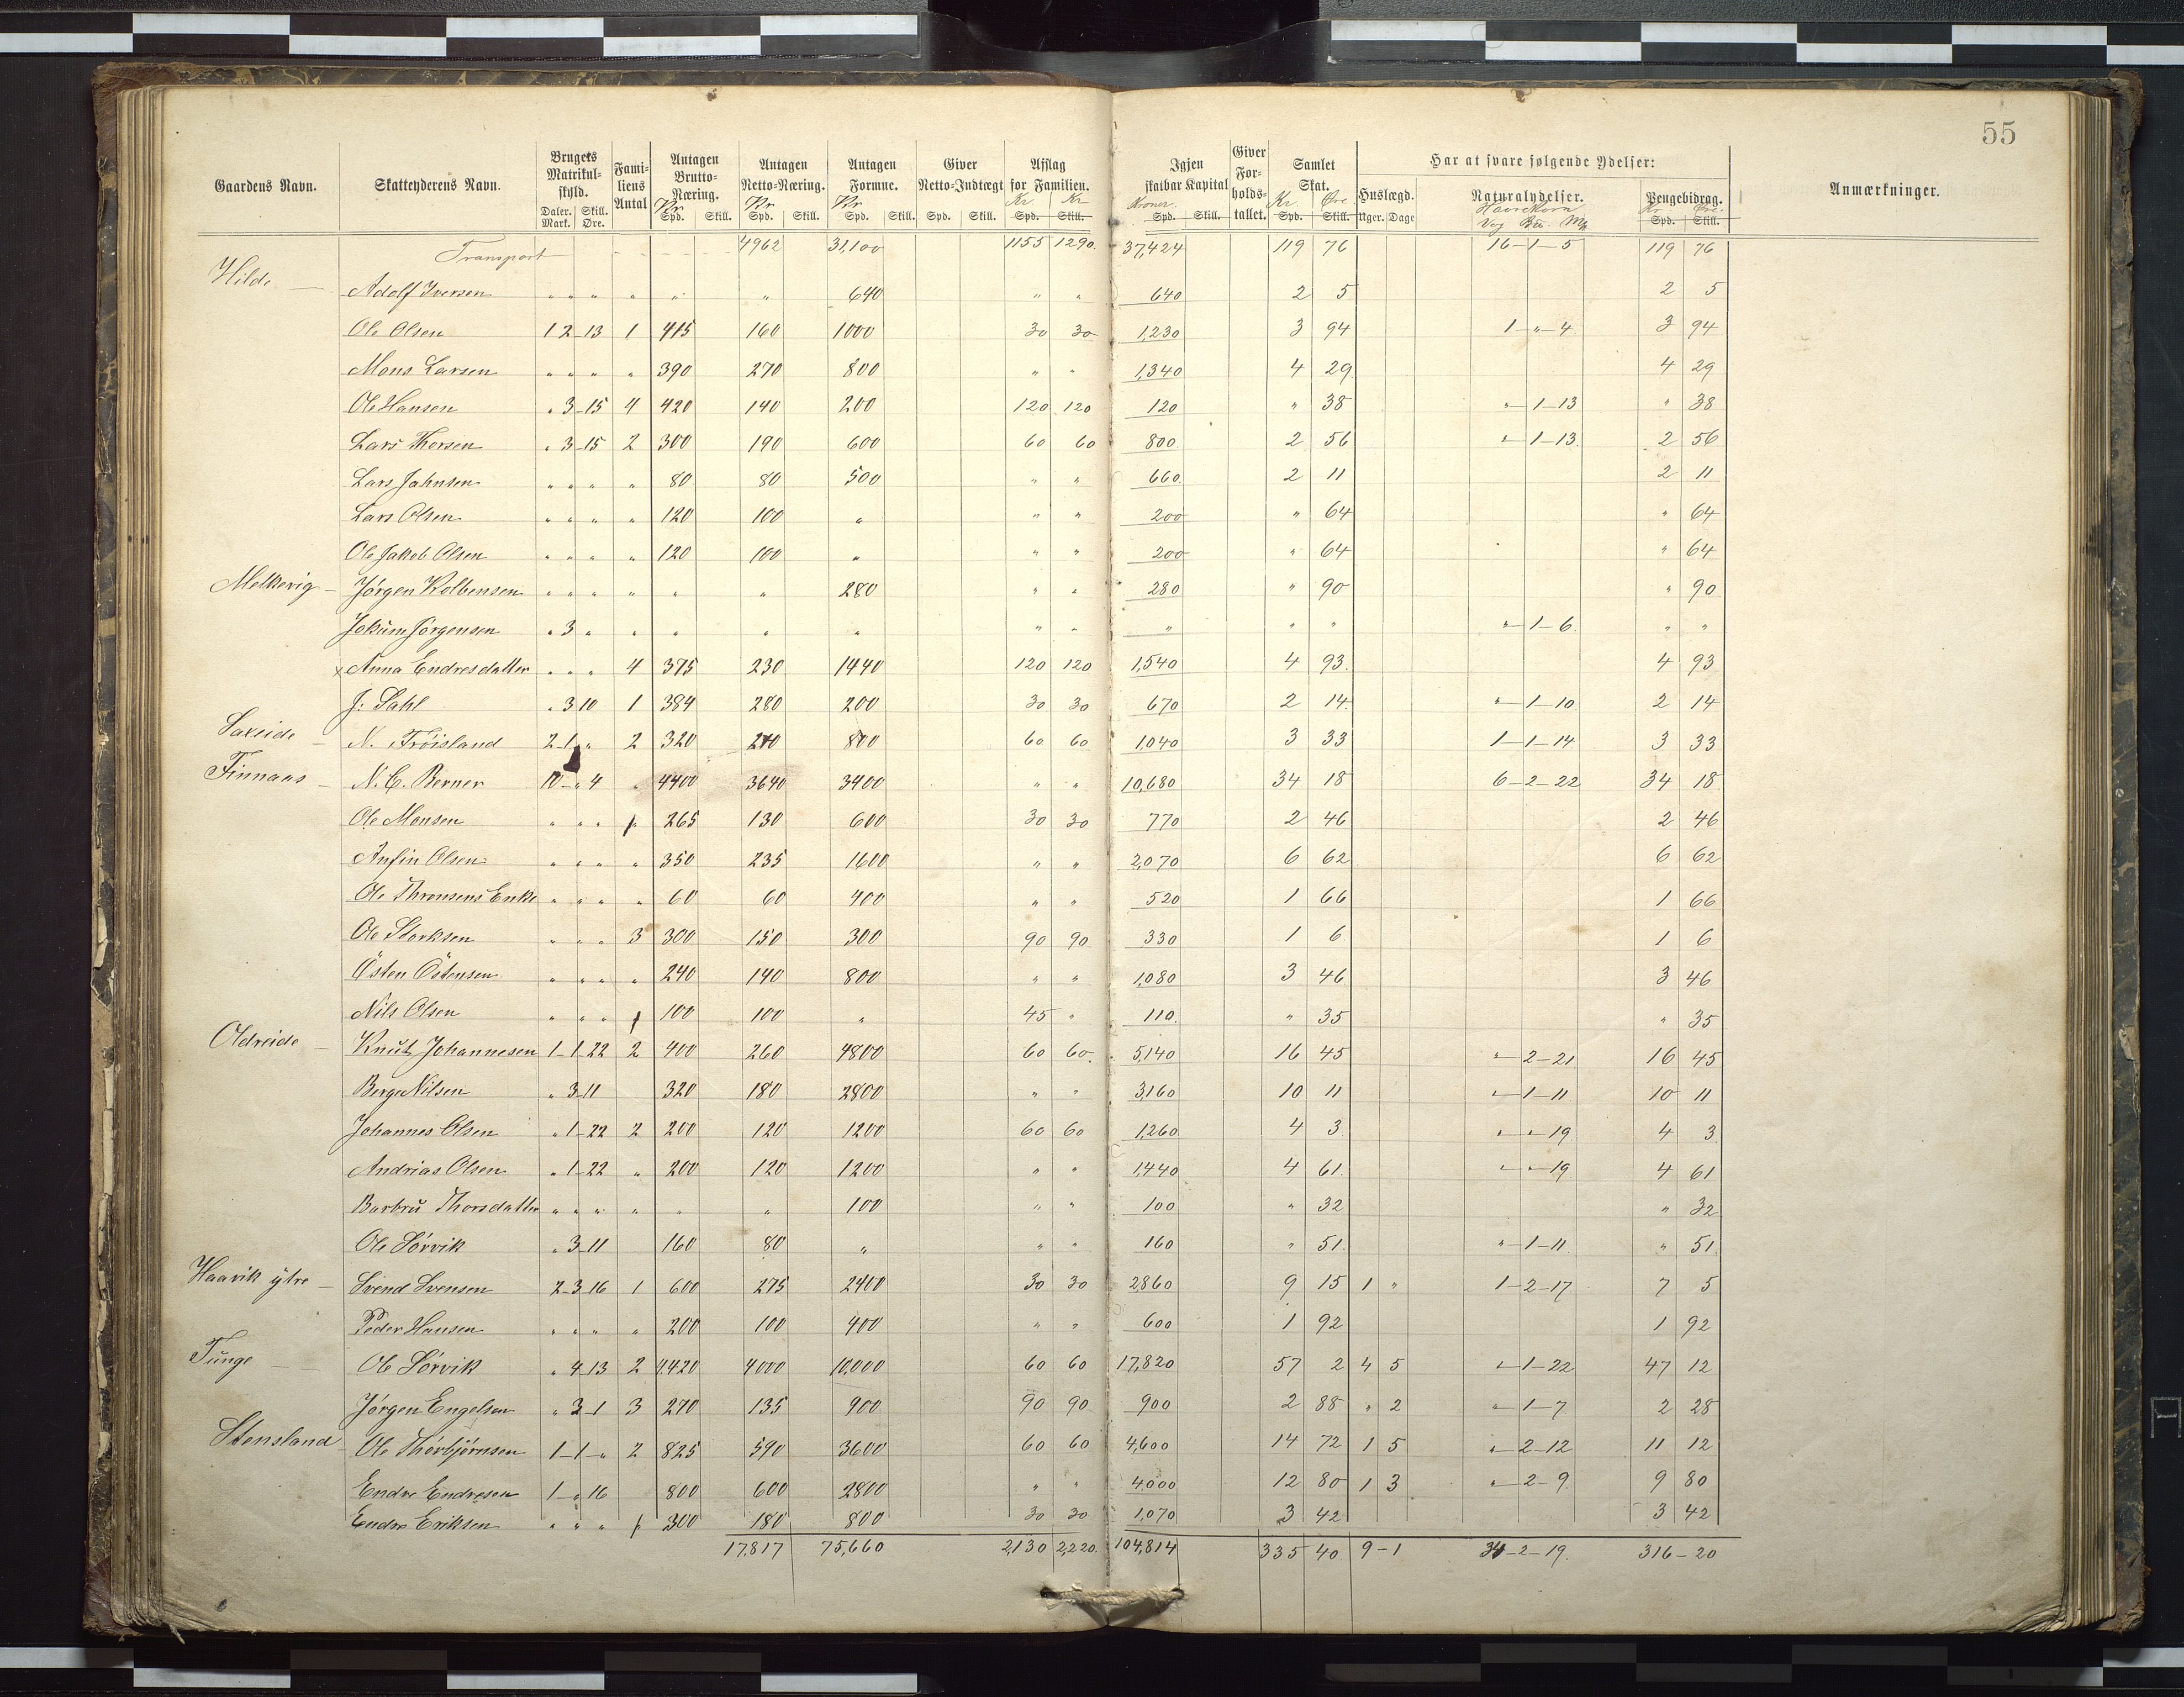 55
Gaardens Navn. Skatteyderens Navn. Brugets Matrikulskyld. Familiens Antal Antagen Brutto-Næring. Antagen Netto-Næring. Antagen Formue. Giver Netto-Indtægt Afslag for Familien. Igjen skatbar Kapital Giver Forholdstallet. Samlet Skat. Har at svare følgende Ydelser: Anmærkninger.
Huslægd. Naturalydelser. Pengebidrag.
Daler. Skill. Kr Kr Kr Kr Kr Kroner. Kr Øre Havrekorn Kr Øre
Mark. Øre. Spd. Skill. Spd. Skill. Spd. Skill. Spd. Skill. Spd. Skill. Spd. Skill. Spd. Skill. Uger. Dage Vog Bis. Mk Spd. Skill.
Transport 4962 31,100 1155 1290. 37,424 119 76 16-1-5 119 76
Hilde Adolf Iversen " " " " " " 640 " " 640 2 5 2 5
Ole Olsen 1 2-13 1 415 160 1000 30 30 1,230 3 94 1-"-4 3 94
Mons Larsen " " " " 390 270 800 " " 1,340 4 29 4 29
Ole Hansen " 3-15 4 420 140 200 120 120 120 " 38 "-1-13 " 38
Lars Thorsen " 3-15 2 300 190 600 60 60 800 2 56 "-1-13 2 56
Lars Jahnsen " " " " 80 80 500 " " 660 2 11 2 11
Lars Olsen " " " " 120 100 " " " 200 " 64 " 64
Ole Jakob Olsen " " " " 120 100 " " " 200 " 64 " 64
Melkevig - Jörgen Kolbensen " " " " " " 280 " " 280 " 90 " 90
Jokum Jörgensen " 3 " " " " " " " " " " "-1-6 " "
x Anna Endresdatter " " " 4 375 230 1440 120 120 1,540 4 93. 4 93
J. Dahl " 3 10 1 384 280 200 30 30 670 2 14 "-1-10 2 14
Saxeide - N. Tröisland 2-1 " 2 320 240 800 60 60 1,040 3 33 1-1-14 3 33
Finnaas - N. C. Berner 10-" 4 " 4400 3640 3400 " " 10,680 34 18 6-2-22 34 18
Ole Monsen " " " 1 265 130 600 30 30 770 2 46 2 46
Anfin Olsen " " " " 350 235 1600 " " 2,070 6 62 6 62
Ole Thronsens Enke " " " " 60 60 400 " " 520 1 66 1 66
Ole Storksen " " " 3 300 150 300 90 90 330 1 6 1 6
Östen Östensen " " " " 240 140 800 " " 1,080 3 46 3 46
Nils Olsen " " " 1 100 100 " 45 " 110 " 35 " 35
Oldreide - Knut Johannesen 1-1 22 2 400 260 4800 60 60 5,140 16 45 "-2-21 16 45
Berge Nilsen " 3-11 320 180 2800 " " 3,160 10 11 "-1-11 10 11
Johannes Olsen " 1-22 2 200 120 1200 60 60 1,260 4 3 "-"-19 4 3
Andrias Olsen " 1-22 " 200 120 1200 " " 1,440 4 61 "-"-19 4 61
Barbru Thorsdatter " " " " " " 100 " " 100 " 32 " 32
Ole Sörvik " 3-11 160 80 " " " 160 " 51 "-1-11 " 51
Haavik ytre - Svend Svensen 2-3 16 1 600 275 2400 30 30 2,860 9 15 1 " 1-2-17 7 5
Peder Hansen " " " " 200 100 400 " " 600 1 92 1 92
Tunge - - Ole Sörvik " 4-13 2 4,420 4000 10,000 60 60 17,820 57 2 4 5 "-1-22 47 12
Jörgen Engelsen " 3-1 3 270 135 900 90 90 900 2 88 " 2 "-1-7 2 28
Stensland - Ole Thorbjörnsen 1-1-" 2 825 590 3600 60 60 4,600 14 72 1 5 "-2-12 11 12
Endre Endresen 1-" 16 800 600 2800 " " 4,000 12 80 1 3 "-2-9 9 80
Endre Eriksen " " " 1 300 180 800 30 30 1,070 3 42 3 42
17,817 75,660 2,130 2,220. 104,814 335 40 9-1 34-2-19. 316-20